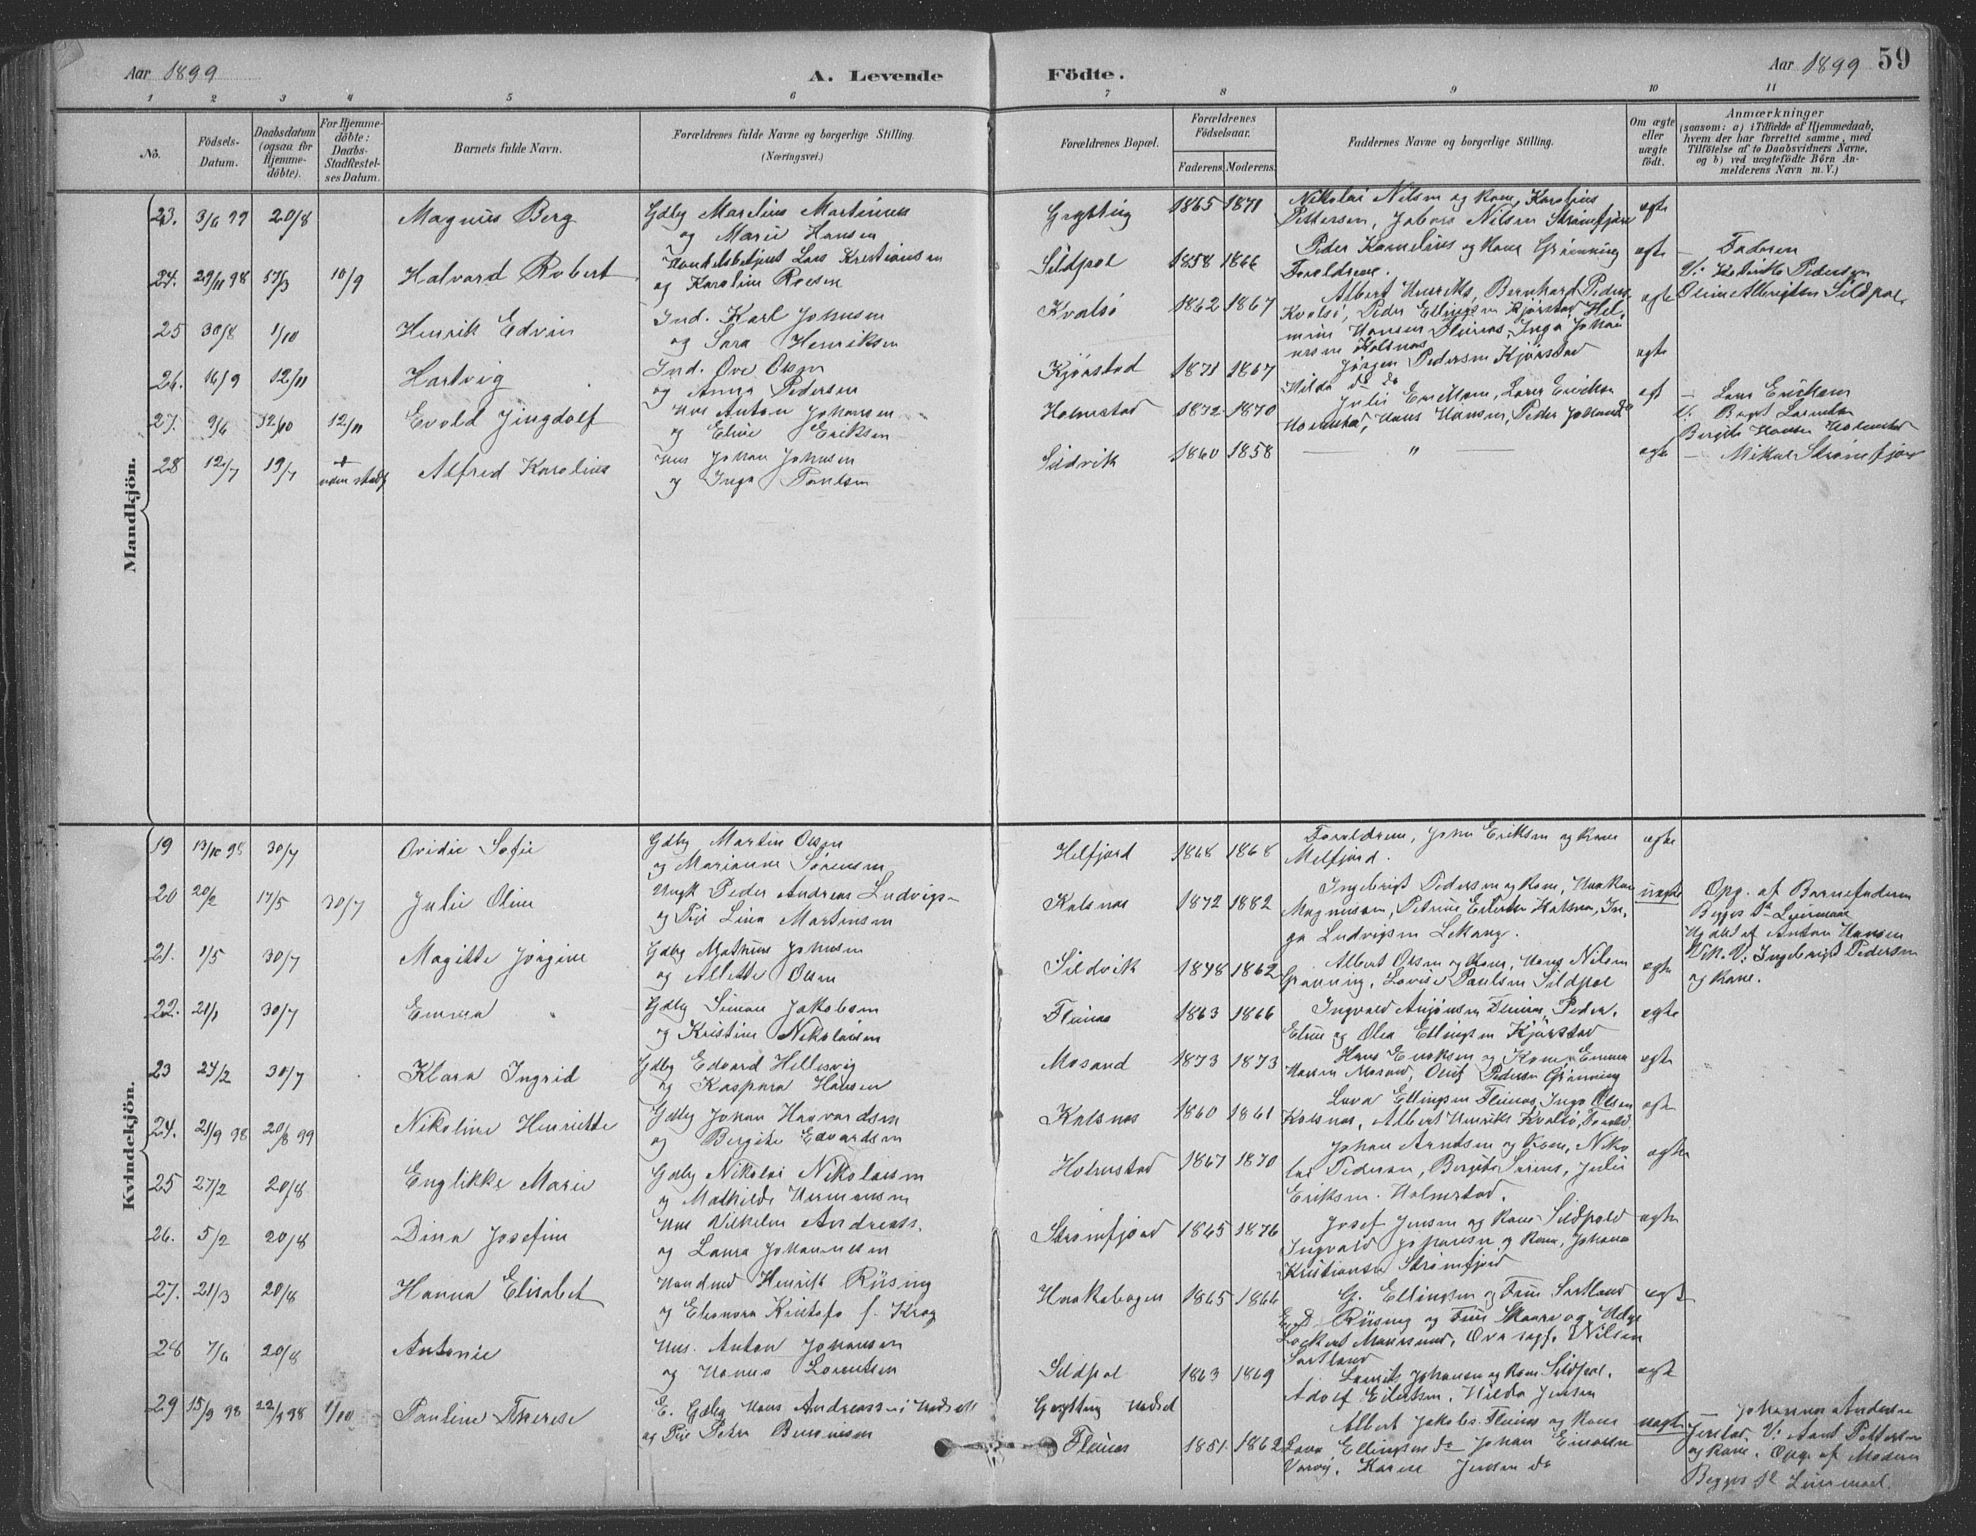 Aar 1899
A. Levende
Födte.
Aar 1899
59
1 2 3 4 5 6 7 8 9 10 11
No.
Födsels-
Datum.
Daabsdatum
(ogsaa for
Hjemme-
döbte).
For Hjemme-
döbte:
Daabs-
Stadfæstel-
ses Datum.
Barnets fulde Navn.
Forældrenes fulde Navne og borgerlige Stilling.
(Næringsvei.)
Forældrenes Bopæl.
Forældrenes
Födselsaar.
Faderens. Moderens.
Faddernes Navne og borgerlige Stilling.
Om ægte
eller
uægte
födt.
Anmærkninger
(saasom: a) i Tilfælde af Hjemmedaab,
hvem der har forrettet samme, med
Tilföielse af to Daabsvidners Navne,
og b) ved uægtefödte Börn An-
melderens Navn m. V.)
Mandkjön.
23. 3/6 99 20/8 Magnus Berg Gdbr Marelius Martinus
og Marie Hansen
1865 1871 Nikolai Nilsen og Kone, Karolius
Pettersen, Nilsen Strømfjord ægte
24. 29/11 98 10/9 Halvard Robert Lars Kristiansen
og Karoline
Sildpol 1858 1866 Peder Kornelius og Kone Grønning
Forældrene. ægte
Faderen
V: Pedersen
Oline Albrigtsen Sildpol.
25 30/8 1/10 Henrik Edvin Ind. Karl Johnsen
og Sara Henriksen
Kvalsø 1862 1867 Albert Henriks, Bernhard Peders
Kvalsø, Peder Ellingsen Kjørstad, Hel-
mine Hansen Flenes, Inga Johan
nesen Kalsnes ægte
26. 16/9 12/11 Hartvig Ind. Ove Olsen
og Anna Pedersen
Kjørstad 1871 1867 Jørgen Pedersen Kjørstad
Hilda do do ægte
27. 9/6 12/11 Evald Jingdolf Hus Anton Johansen
og Eline Eriksen
Holmstad 1872 1870 Julie Eriksen, Lars Eriksen
Holmstad, Hans Hansen, Peder Johans do ægt
Lars Eriksen
V. Lorentsen
Bergite Hansen Holmstad
28 12/7 19/7 + Alfred Karolius Hus Johan Johnsen
og Inga Paulsen
Sildvik 1860 1858 " ægte Mikal Strømfjord
Kvindekjön.
19 13/10 98 30/7 Ovidie Sofie Gdbr Martin Olsen
og Marianne Sørensen
Helfjord 1868 1868 Forældrene, John Eriksen og Kone
Melfjord. ægte
20 20/2 17/5 30/7 Julie Oline Ungk Peder Andreas Ludvigs-
og Pige Lina Martinsen
Kalsnes 1872 1882 Ingebrigt Pedersen og Kone, Haakon
Magnussen, Petrine Kalsnes, In-
ga Ludvigsen Lekang. uægte
Opg. af Barnefaderen
Begges 1ste Leiermaal
af Anton Hansen
Vik. V: Ingebrigt Pedersen
og Kone.
21. 1/5 30/7 Magitte Jørgine Gdbr Mathias Johnsen
og Albette Olsen
Sildvik 1848 1862 Albert Olsen og Kone, Hans Nilsen
Grønning, Lovise Paulsen Sildpol ægte
22. 21/1 30/7 Emma Gdbr Simon Jakobsen
og Kristine Nikolaisen
Flenes 1863 1866 Ingvald Flenes, Peder,
Eline og Olea Ellingsen Kjørstad ægte
23 24/2 30/7 Klara Ingrid Gdbr Edvard Hellesvig
og Kaspara Hansen
Mosand 1873 1873 Hans Eriksen og Kone, Emma
Hansen Mosand, Pedersen Grønning ægte
24. 21/9 98 20/8 99 Nikoline Henriette Gdbr Johan Haavardsen
og Bergite Edvardsen
Kalsnes 1860 1861 Lava Ellingsen Flenes, Inga Olsen
Kalsnes, Albert Henriks Kvalsø, Foreld. ægte
25 27/2 20/8 Englikke Marie Gdbr Nikolai Nikolaisen
og Mathilde Hermansen
Holmstad 1867 1870 Johan Arntsen og Kone, Niko
lai Pedersen, Bergite Sørens, Julie
Eriksen. Holmstad. ægte
26. 5/2 20/8 Dina Josefine Hus Vilhelm Andreass.
og Laura Johannesen
Strømfjord 1865 1876 Josef Jensen og Kone Sildpold
Ingvald Johansen og Kone, Johana
Kristiansen Strømfjord ægte
27. 21/3 20/8 Hanna Elisabet Handmd Henrik Riising
og Elenora Kristofa f. Krog
Haakabogen 1865 1866 G. Ellingsen og Frue Sortland
E. D. Riising og Frue Skaarv og Helga
Lockert Maursund, Ovarsagf. Nilsen
Sortland ægt
28 7/6 20/8 Antonie Hus. Anton Johansen
og Hanna Lorentsen
Sildpol 1863 1869 Laurits Johansen og Kone Sildpol,
Adolf Eilertsen, Hilda Jensen ægte
29 15/9 98 22/9 98 1/10 Pauline Therese E. Gdbr Hans Andreass- i Hadsel
og Pige Petra
Hadsel
Flenes 1851. 1862 Albert Jakobs. Flenes og Kone
Lava Ellingsen do Johan
Karen Jensen do uægte
Johannes Anders
V: Arnt Pettersen
og Kone. Opg. af Moderen
Begges 2 Leiermaal.